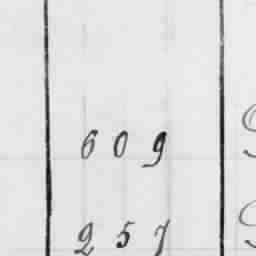 609
257